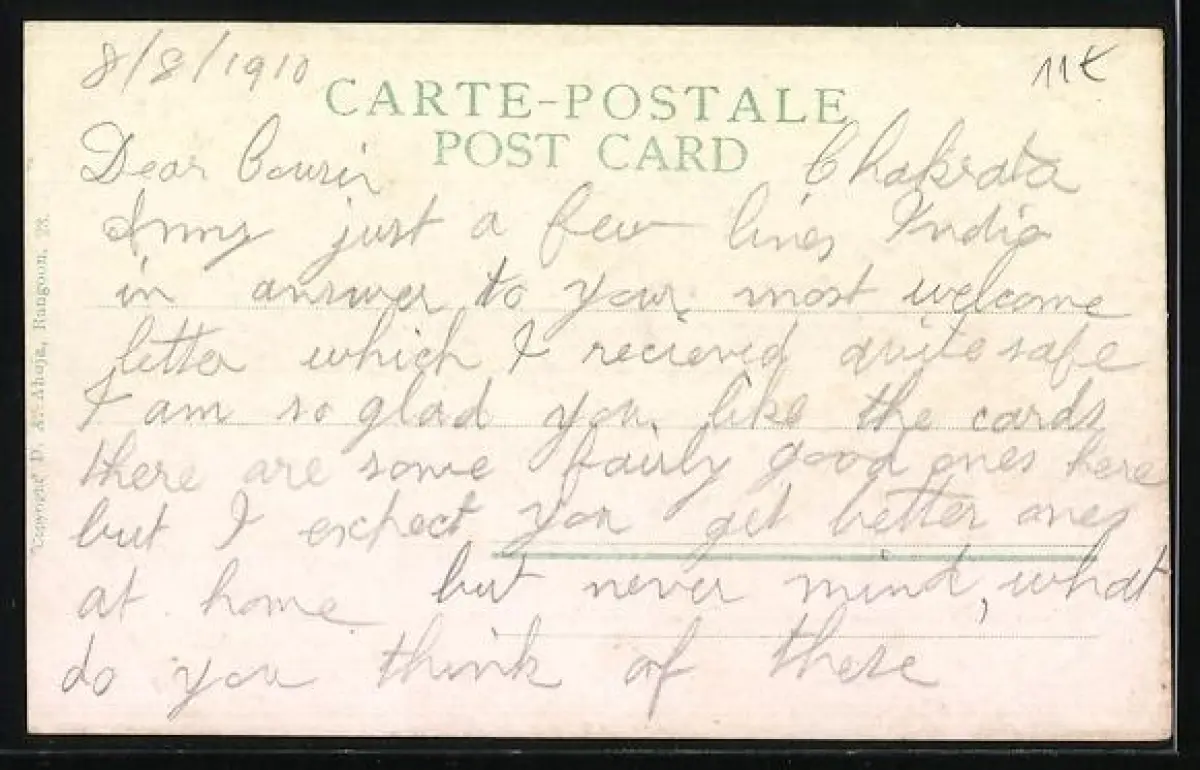 8/8/1910
11€
CARTE-POSTALE
POST CARD
Dear Cousin Chakrata
just a few lines India
in answer to your most welcome
letter which I recieved quite safe
I am so glad you like the cards
there are some fairly good ones here
but I exspect you get better ones
at home but never mind, what
do you think of these
Copyright D. A. Ahuja, Rangoon. 28.